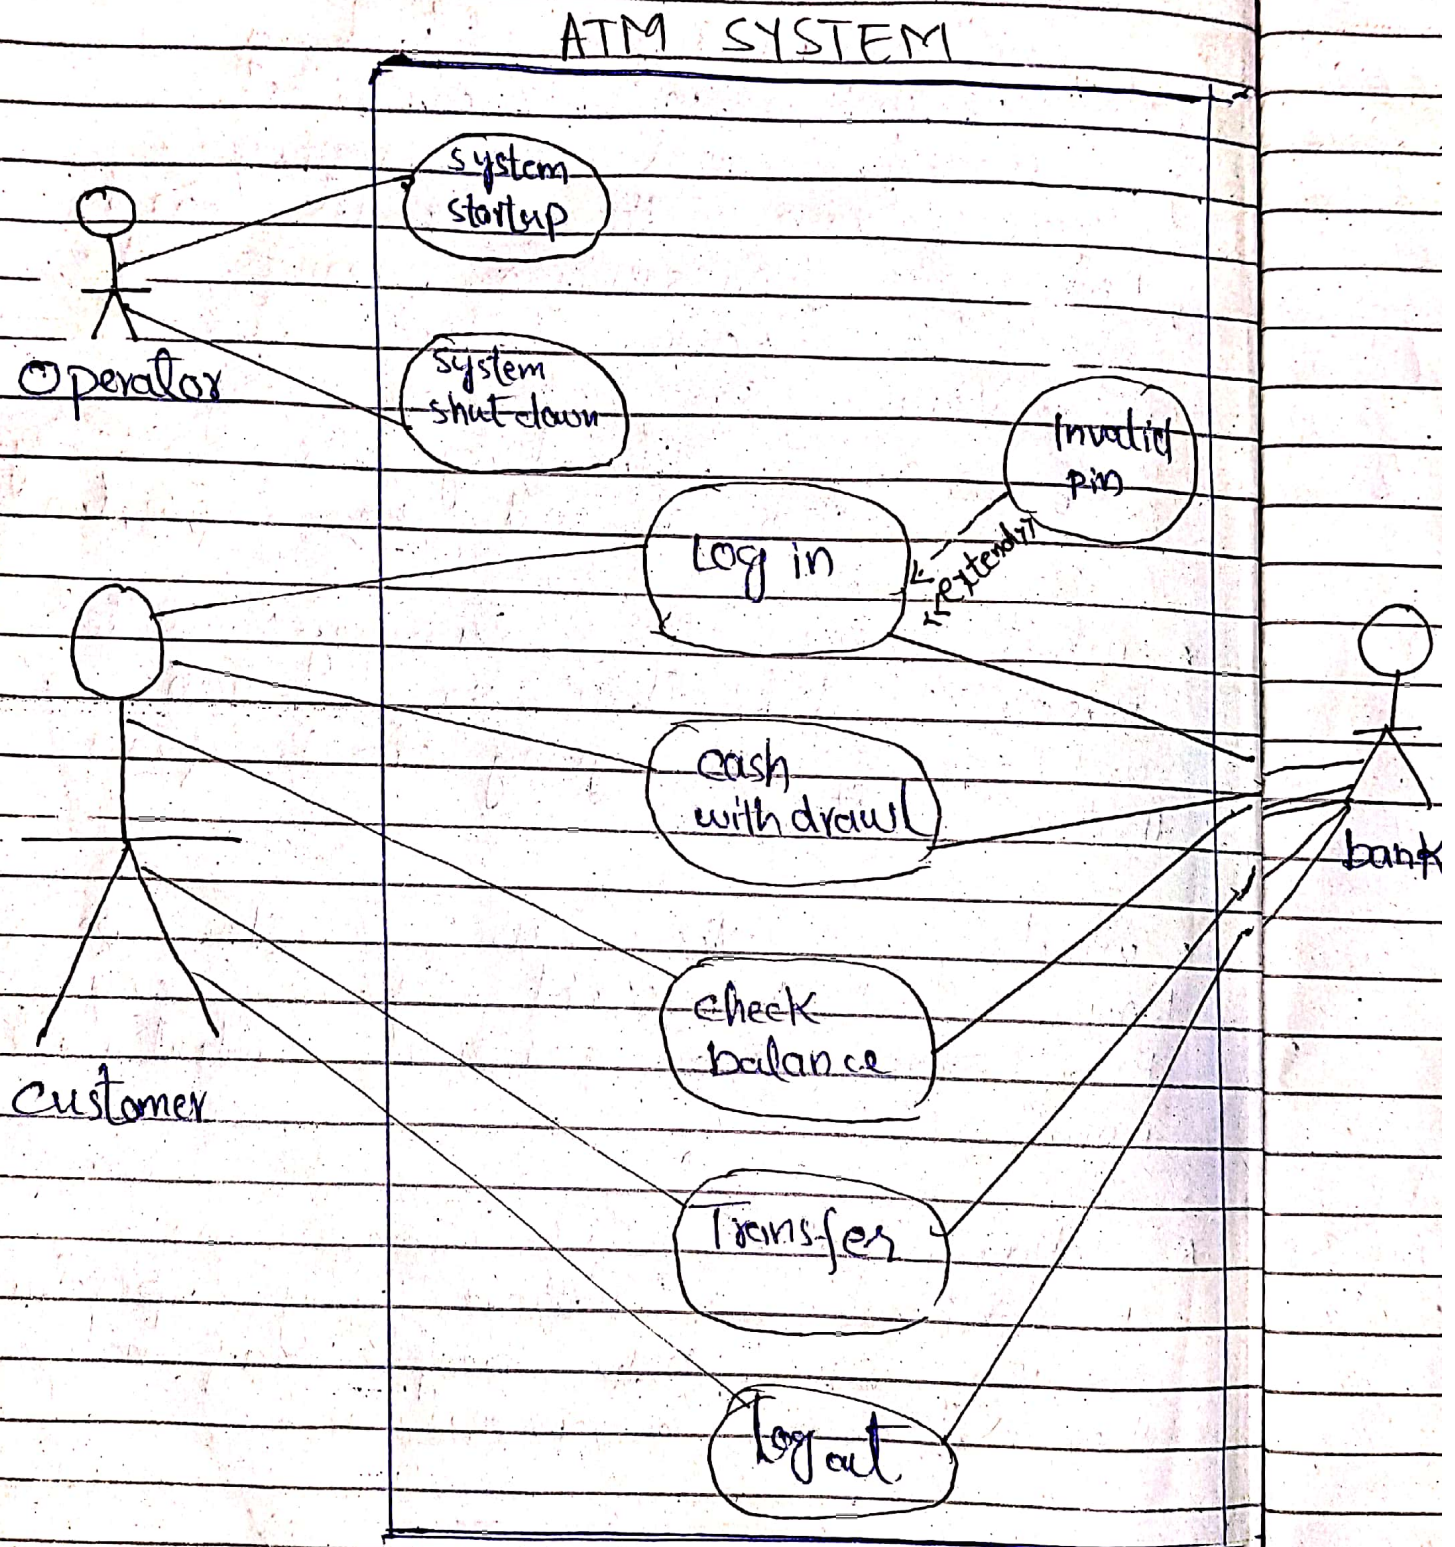 ATM SYSTEM
system
startup
Operator
system
shut down
Invalid
pin
Log in
<<extend>>
cash
withdrawl
bank
check
balance
customer
Transfer
Log out